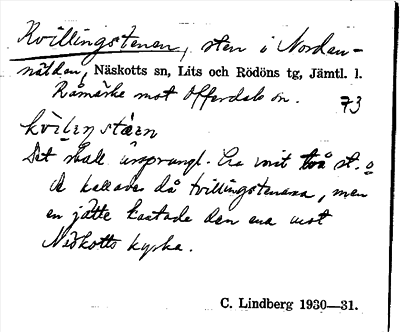 Kvillingstenen, sten i Nordan-
nälden, Näskotts sn, Lits och Rödöns tg, Jämtl. l.
Råmärke mot Offerdals sn. 73
Det skall ursprungl. ha varit två st. o
de kallades då tvillingstenarna, men
en jätte kastade den ena mot
Näskotts kyrka.
C. Lindberg 1930—31.